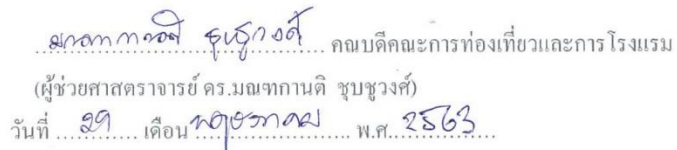 มณฑกานติ ชุบชูวงศ์ คณบดีคณะการท่องเที่ยวและการโรงแรม
(ผู้ช่วยศาสตราจารย์ ดร.มณฑกานติ ชุบชูวงศ์)
วันที่ 29 เดือน พฤษภาคม พ.ศ. 2563